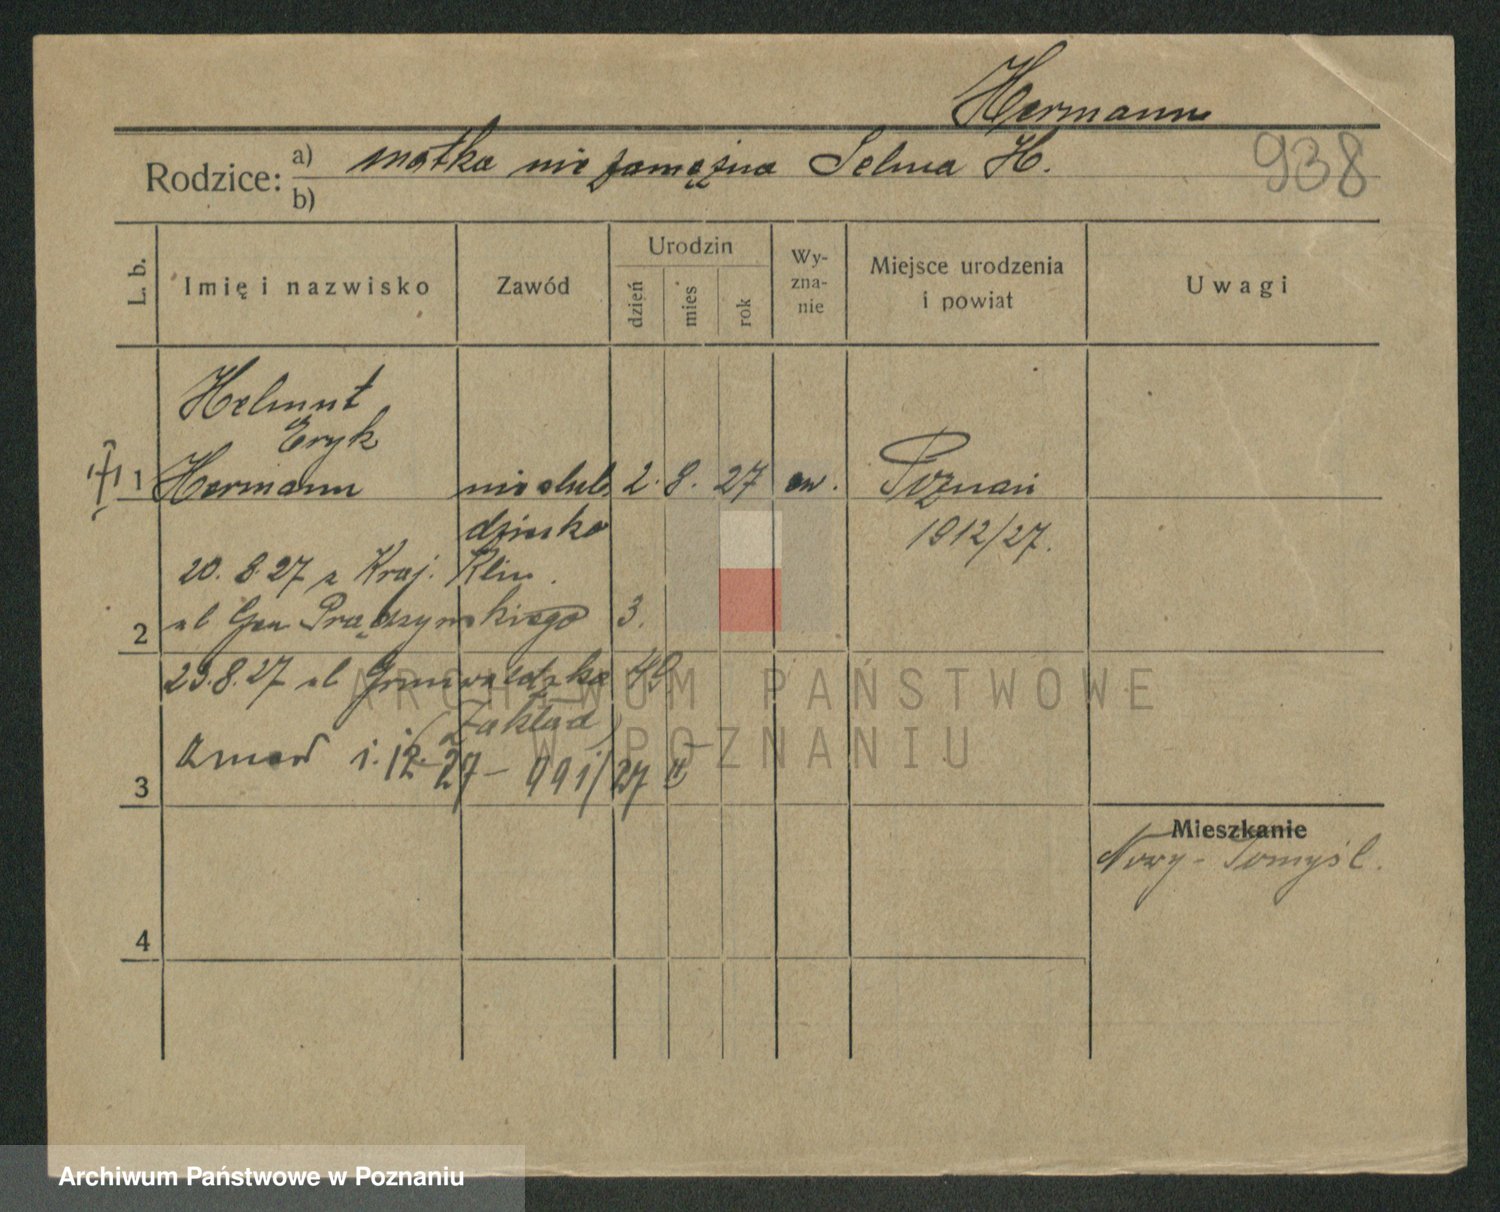 Hermann
938
Rodzice: a) matka niezamężna Selma H.
b)
L. b. Imię i nazwisko Zawód Urodzin dzień mies rok Wy-zna-nie Miejsce urodzenia i powiat Uwagi
Helmut
Eryk
1 Hermann nieślub. 2. 8. 27 ew. Poznań
dziecko 1912/27.
20. 8. 27 z Kraj. Klin.
2 ul Gen Prądzyńskiego 3.
23. 8. 27 ul Grunwaldzka 49
(Zakład)
zmarł 1. 12. 27 – 991/27 II
3
Mieszkanie
Nowy-Tomyśl.
4
ARCHIWUM PAŃSTWOWE
W POZNANIU
Archiwum Państwowe w Poznaniu